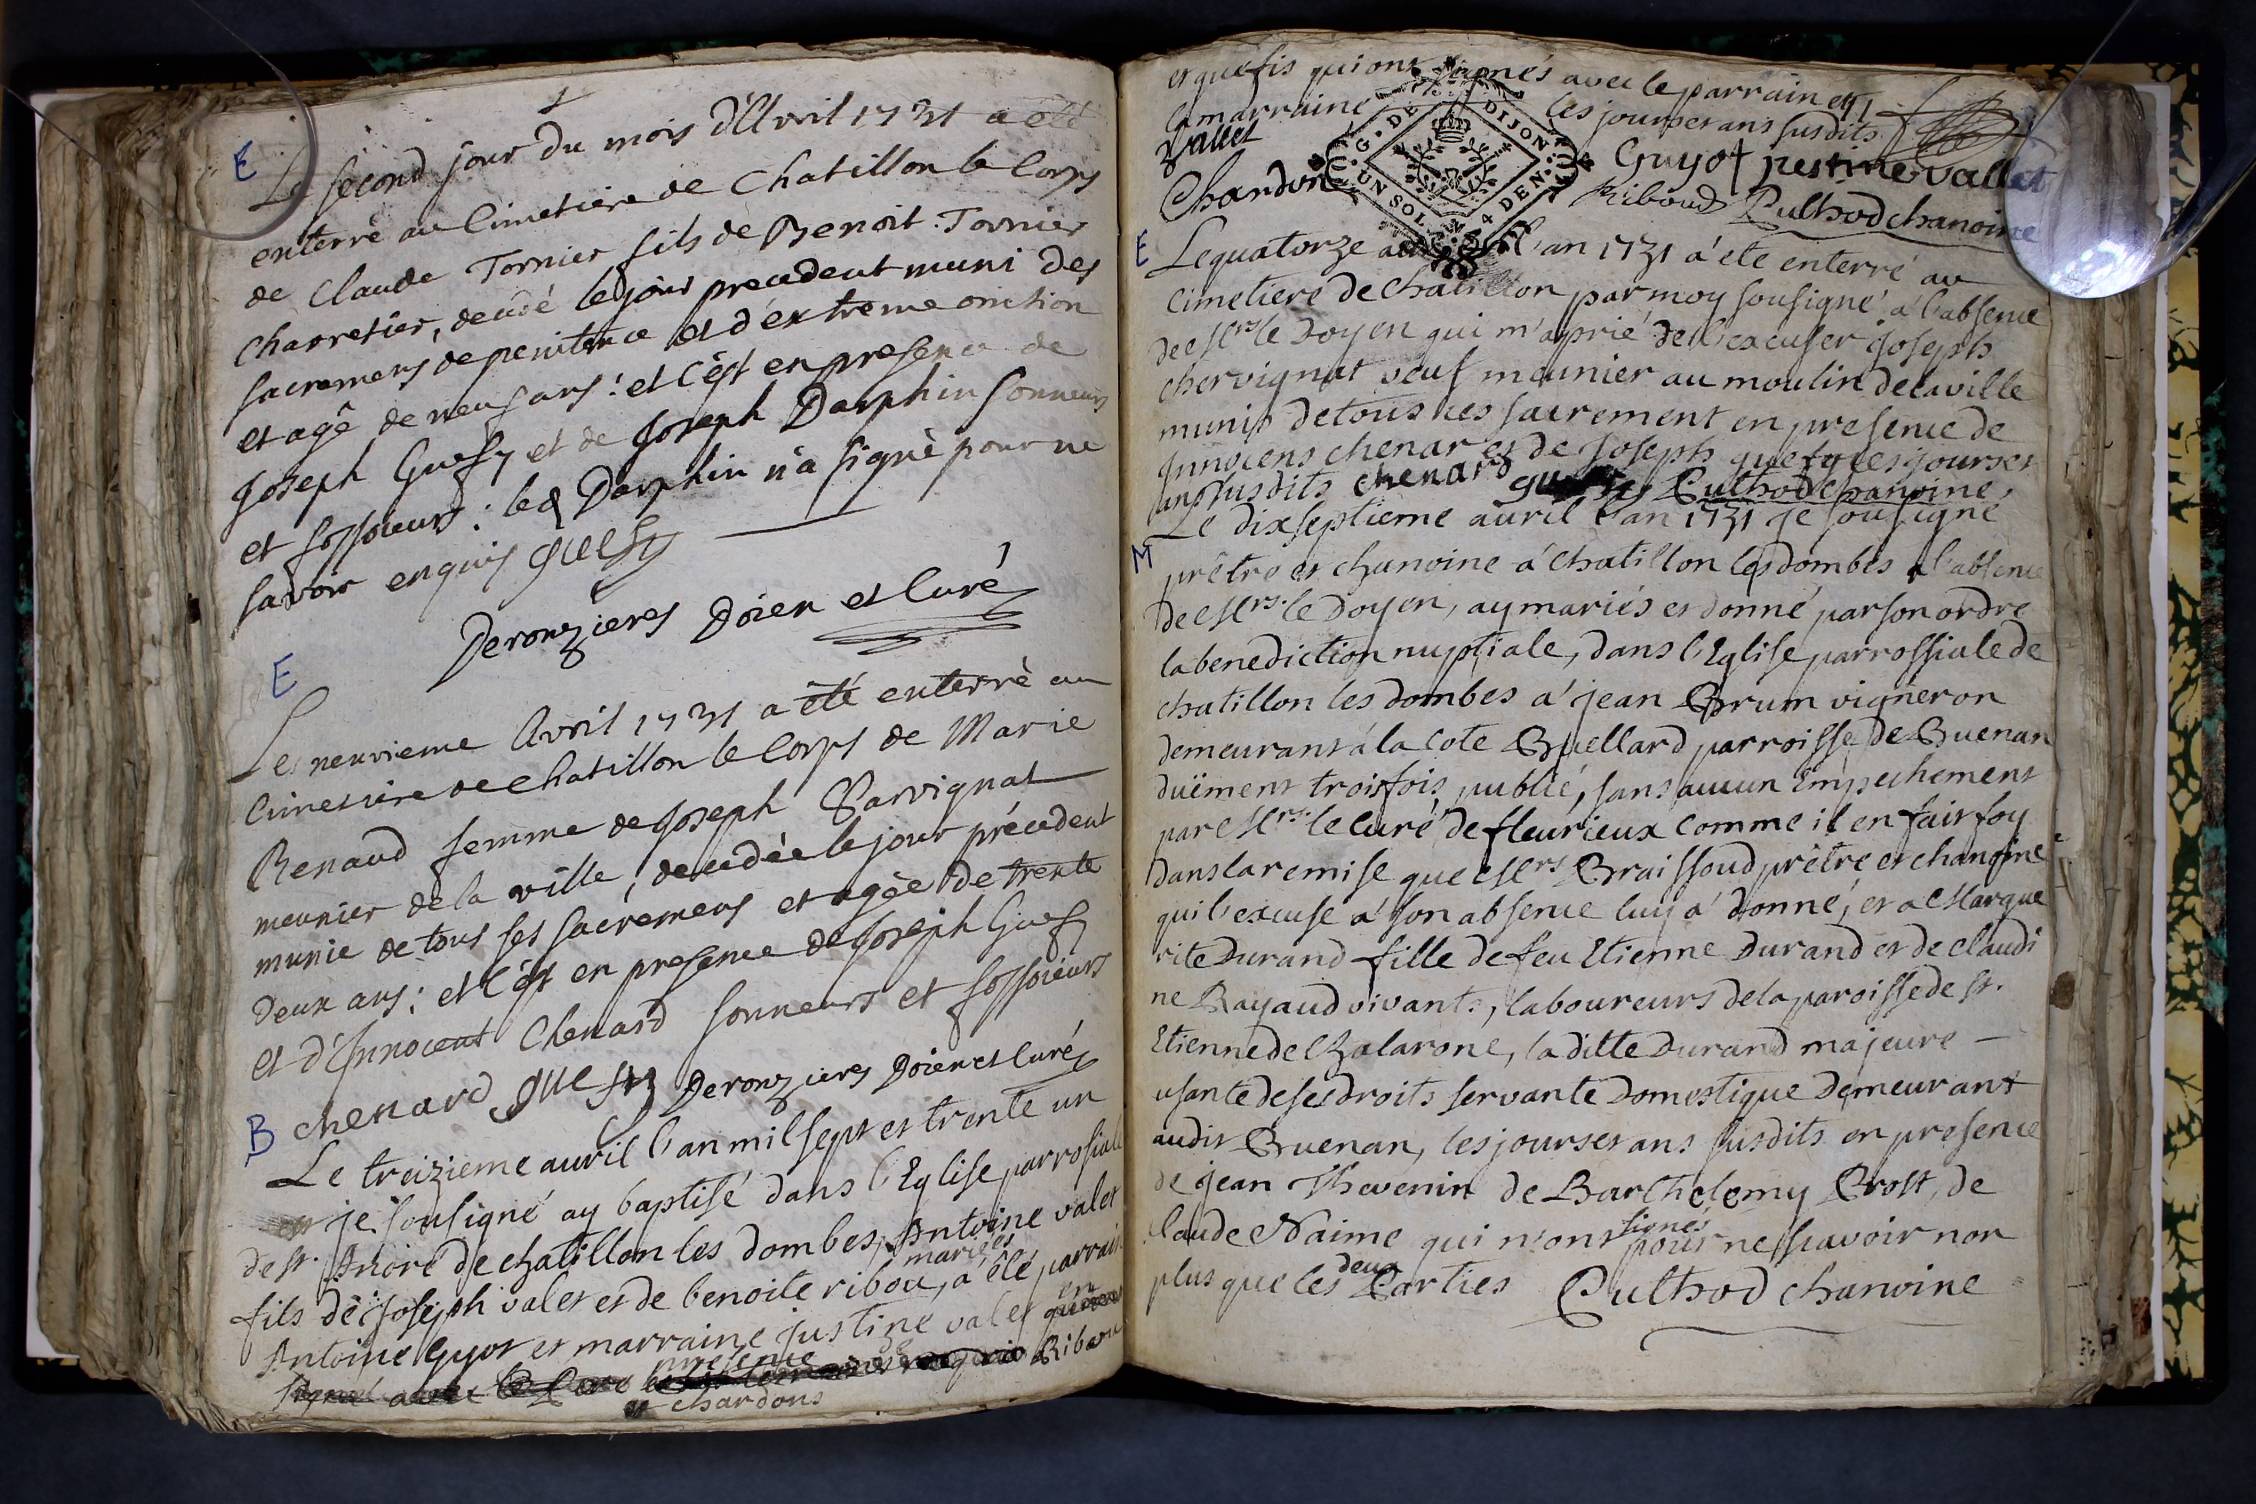 E
Le second jour du mois d'Avril 1731 a été
enterré au Cimetiere de Chatillon le Corps
de Claude Tornier fils de Benoit Tornier
charretier, decedé le jour precedent muni des
sacremens de penitence et d'extreme onction
et agé de neuf ans: et c'est en presence de
Joseph Guefy et de Joseph Darphin sonneurs
et fossoieurs: led Darphin n'a signé pour ne
savoir enquis guefy
Deronzieres Doien et Curé
E
Le neuvieme Avril 1731 a été enterré au
Cimetiere de Chatillon le Corps de Marie
Renaud femme de Joseph Sarvignat
meunier de la ville, decedée le jour précedent
munie de tous ses sacremens et agée de trente
Deux ans: et c'est en presence de Joseph Guefy
et d'Innocent Chenard sonneurs et fossoieurs
chenard guefy Deronzieres Doien et Curé
B
Le treizieme auril l'an mil sept et trente un
je sousigné ay baptisé dans l'Eglise parrosiale
de st. André de chatillon les dombes, Antoine valet
fils de Joseph valet et de benoite ribou, mariées a été parrain
Antoine Guyot et marraine justine valet en
presence de Ribou
et chardons
et guefis qui ont signés avec le parrain et
la marraine les jours et ans susdits
Vallet
Guyot justine vallet
Chardon Riboud Culhod chanoine
G. DE DIJON
UN SOL 4 DEN.
E
Le quatorze l'an 1731 a été enterré au
cimetiere de chatillon par moy sousigné a l'absence
de Mrs le Doyen qui m'a prié de l'excuser Joseph
chervignat veuf meunier au moulin de la ville
munis de tous ses sacrement en presence de
Innocens chenar et de Joseph guefy les jours et
ans susdits chenard Culhod chanoine
M
Le dixseptieme auril l'an 1731 je sousigné
prêtre et chanoine a chatillon les dombes a l'absence
de Mrs. le Doyen, ay mariés et donné par son ordre
la benediction nuptiale, dans l'Eglise parrossiale de
chatillon les dombes a jean Brun vigneron
demeurant a la cote Buellard parroisse de Buenan
duëment trois fois publié, sans aucun Empechement
par Mrs. le curé de fleurieux comme il en fait foy
dans la remise que Mrs Braissoud prêtre et chanoine
qui l'excuse a son absence luy a donné, et a Margue
rite Durand fille de feu Etienne Durand et de claudi
ne Rayaud vivants, laboureurs de la paroisse de st.
Etienne de Chalarone, la ditte Durand majeure —
usante de ses droits servante Domestique Demeurant
audit Buenan, les jours et ans susdits en presence
de jean Thevenin de Barthelemy Brost, de
laude Naime qui n'ont signés pour ne scavoir non
plus que les deux Parties Culhod chanoine